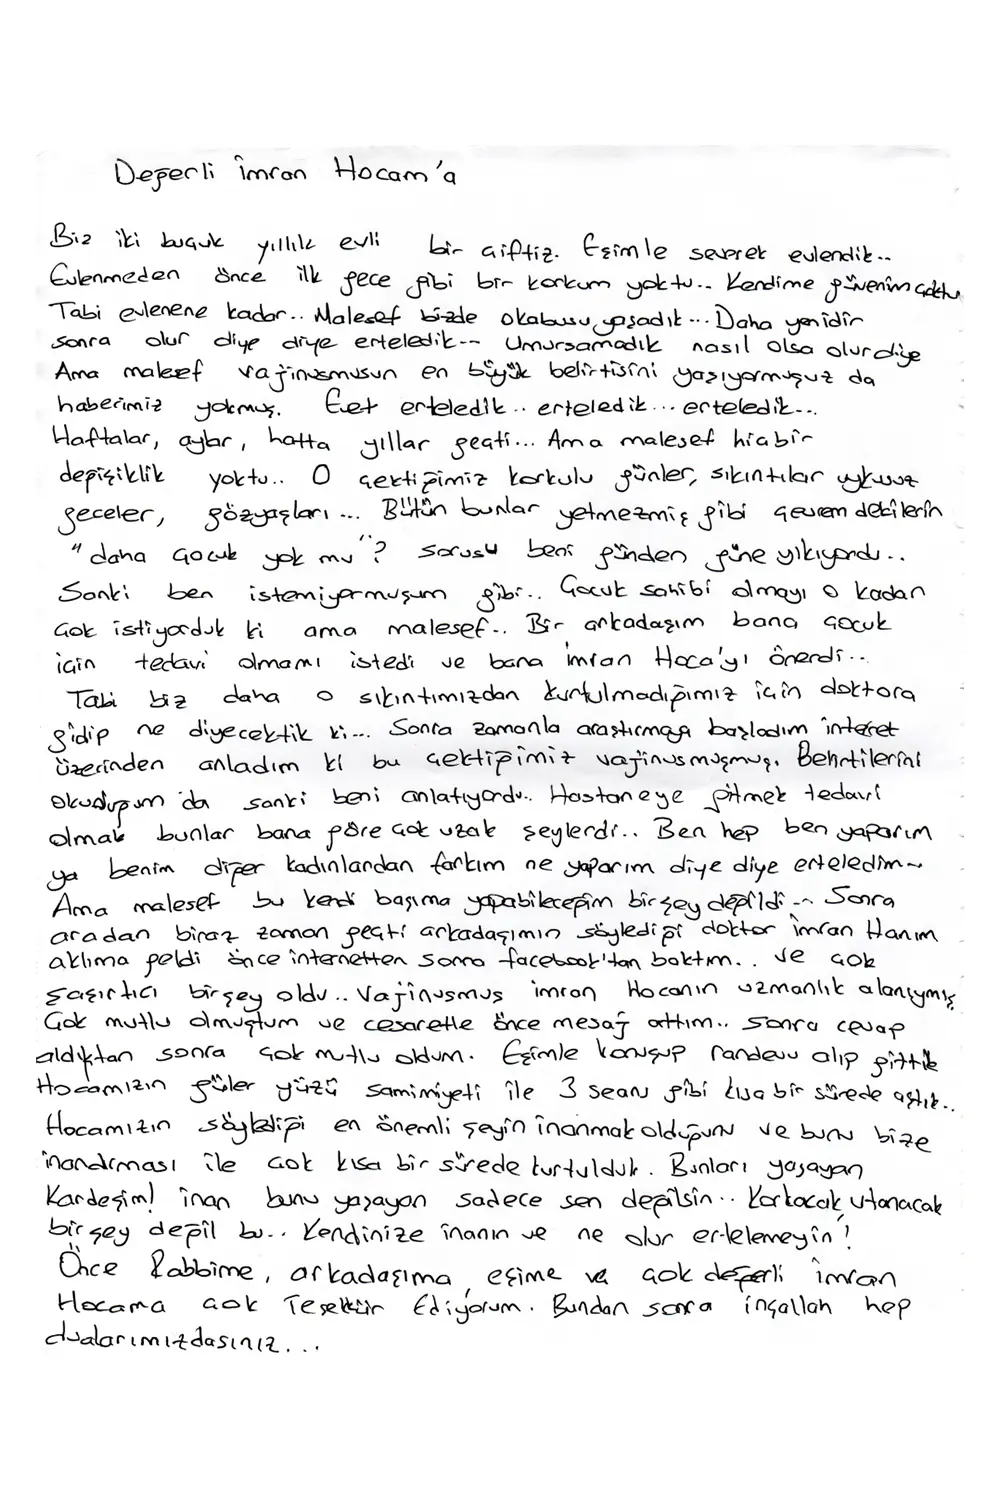 Değerli İmran Hocam'a
Biz iki buçuk yıllık evli bir çiftiz. Eşimle severek evlendik..
Evlenmeden önce ilk gece gibi bir korkum yoktu.. Kendime güvenim çoktu
Tabi evlenene kadar.. Malesef bizde o kabusu yaşadık... Daha yenidir
sonra olur diye diye erteledik.. Umursamadık nasıl olsa olur diye
Ama malesef vajinusmusun en büyük belirtisini yaşıyormuşuz da
haberimiz yokmuş. Evet erteledik.. erteledik... erteledik...
Haftalar, aylar, hatta yıllar geçti... Ama malesef hiçbir
değişiklik yoktu.. O çektiğimiz korkulu günler, sıkıntılar uykusuz
geceler, gözyaşları... Bütün bunlar yetmezmiş gibi çevremdekilerin
"daha çocuk yok mu"? sorusu beni günden güne yıkıyordu..
Sanki ben istemiyormuşum gibi.. Çocuk sahibi olmayı o kadar
çok istiyorduk ki ama malesef.. Bir arkadaşım bana çocuk
için tedavi olmamı istedi ve bana İmran Hoca'yı önerdi..
Tabi biz daha o sıkıntımızdan kurtulmadığımız için doktora
gidip ne diyecektik ki... Sonra zamanla araştırmaya başladım internet
üzerinden anladım ki bu çektiğimiz vajinusmusmuş. Belirtilerini
okuduğum'da sanki beni anlatıyordu.. Hastaneye gitmek tedavi
olmak bunlar bana göre çok uzak şeylerdi.. Ben hep ben yaparım
ya benim diğer kadınlardan farkım ne yaparım diye diye erteledim..
Ama malesef bu kendi başıma yapabileceğim birşey değildi.. Sonra
aradan biraz zaman geçti arkadaşımın söylediği doktor İmran Hanım
aklıma geldi önce internetten sonra facebook'tan baktım.. ve çok
şaşırtıcı birşey oldu.. Vajinusmus İmran Hocanın uzmanlık alanıymış
Çok mutlu olmuştum ve cesaretle önce mesaj attım.. sonra cevap
aldıktan sonra çok mutlu oldum. Eşimle konuşup randevu alıp gittik
Hocamızın güler yüzü samimiyeti ile 3 seans gibi kısa bir sürede aştık..
Hocamızın söylediği en önemli şeyin inanmak olduğunu ve bunu bize
inandırması ile çok kısa bir sürede kurtulduk. Bunları yaşayan
Kardeşim! inan bunu yaşayan sadece sen değilsin.. Korkacak utanacak
birşey değil bu.. Kendinize inanın ve ne olur ertelemeyin!
Önce Rabbime, arkadaşıma, eşime ve çok değerli İmran
Hocama çok Teşekkür Ediyorum. Bundan sonra inşallah hep
dualarımızdasınız...